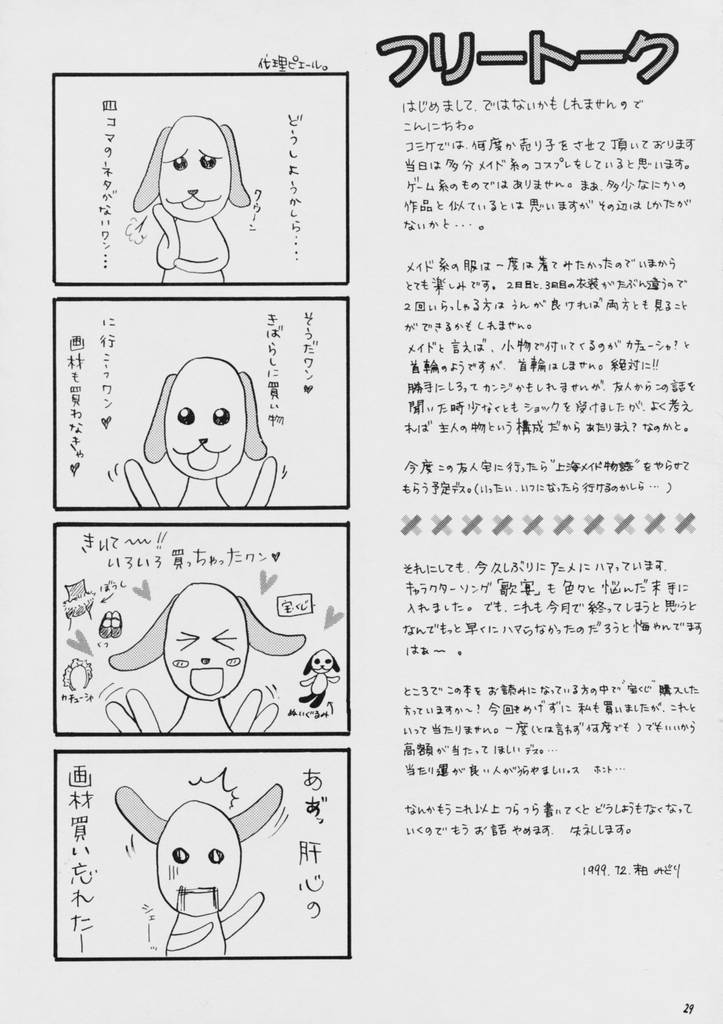 フリートーク
はじめまして、ではないかもしれませんので
こんにちわ。
コミケでは、何度か売り子をさせて頂いております
当日は多分メイド系のコスプレをしていると思います。
ゲーム系のものではありません。まぁ、多少なにかの
作品と似ているとは思いますがその辺はしかたが
ないかと…。
メイド系の服は一度は着てみたかったのでいまから
とても楽しみです。2日目と3日目の衣装がたぶん違うので
2回いらっしゃる方はうんが良ければ両方とも見ること
ができるかもしれません。
メイドと言えば、小物で付いてくるのがカチューシャ?と
首輪のようですが、首輪はしません。絶対に!!
勝手にしろってカンジかもしれませんが、友人からこの話を
聞いた時少なくともショックを受けましたが、よく考え
れば主人の物という構成だからあたりまえ?なのかと。
今度この友人宅に行ったら"上海メイド物語"をやらせて
もらう予定デス。(いったい、いつになったら行けるのかしら…)
それにしても、今久しぶりにアニメにハマっています。
キャラクターソング「歌宴」も色々と悩んだ末手に
入れました。でも、これも今月で終ってしまうと思うと
なんでもっと早くにハマらなかったのだろうと悔やんでます
はぁ〜。
ところでこの本をお読みになっている方の中で"宝くじ"購入した
方っていますか〜?今回もめげずに私も買いましたが、これと
いって当たりません。一度(とは言わず何度でも)でもいいから
高額が当たってほしいデス…。
当たり運が良い人がうらやましいっス ホント…
なんかもうこれ以上つらつら書いてくとどうしようもなくなって
いくのでもうお話やめます。失礼します。
1999.12.柏 みどり
代理ピエール。
どうしようかしら…
クゥーン
四コマのネタがないワン…
そうだワン♥
きばらしに買い物
に行こうワン♥
画材も買わなきゃ♥
きいて〜!!
いろいろ買っちゃったワン♥
ぼうし
くつ
カチューシャ
宝くじ
ぬいぐるみ
あ゛ッ
肝心の
画材買い忘れたー
シェーッ
29